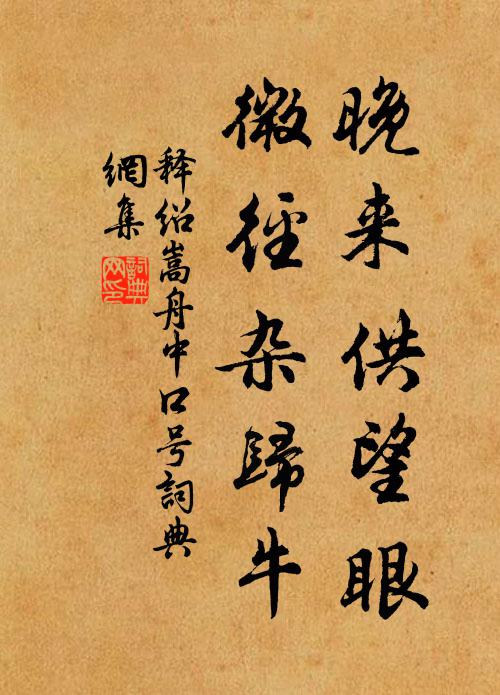 晚来供望眼
微径杂歸牛
释绍嵩舟中口号詞典
網集
詞典网印